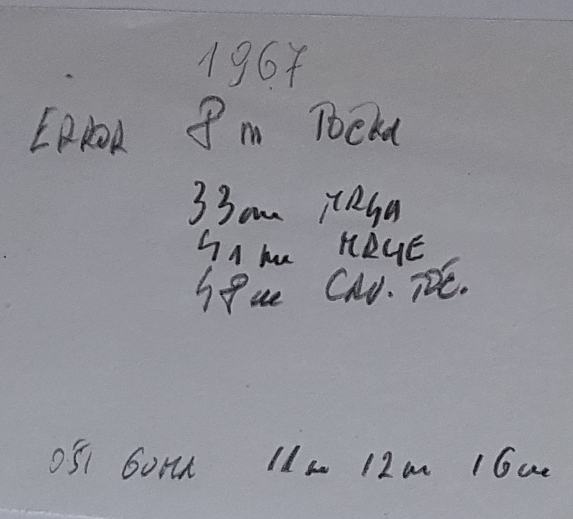 1967
ERROR 8 m TOČKA
33 cm MRGA
41 cm MRGE
48 cm CAV. TOČ.
OŠI GUMA 11 m 12 m 16 cm